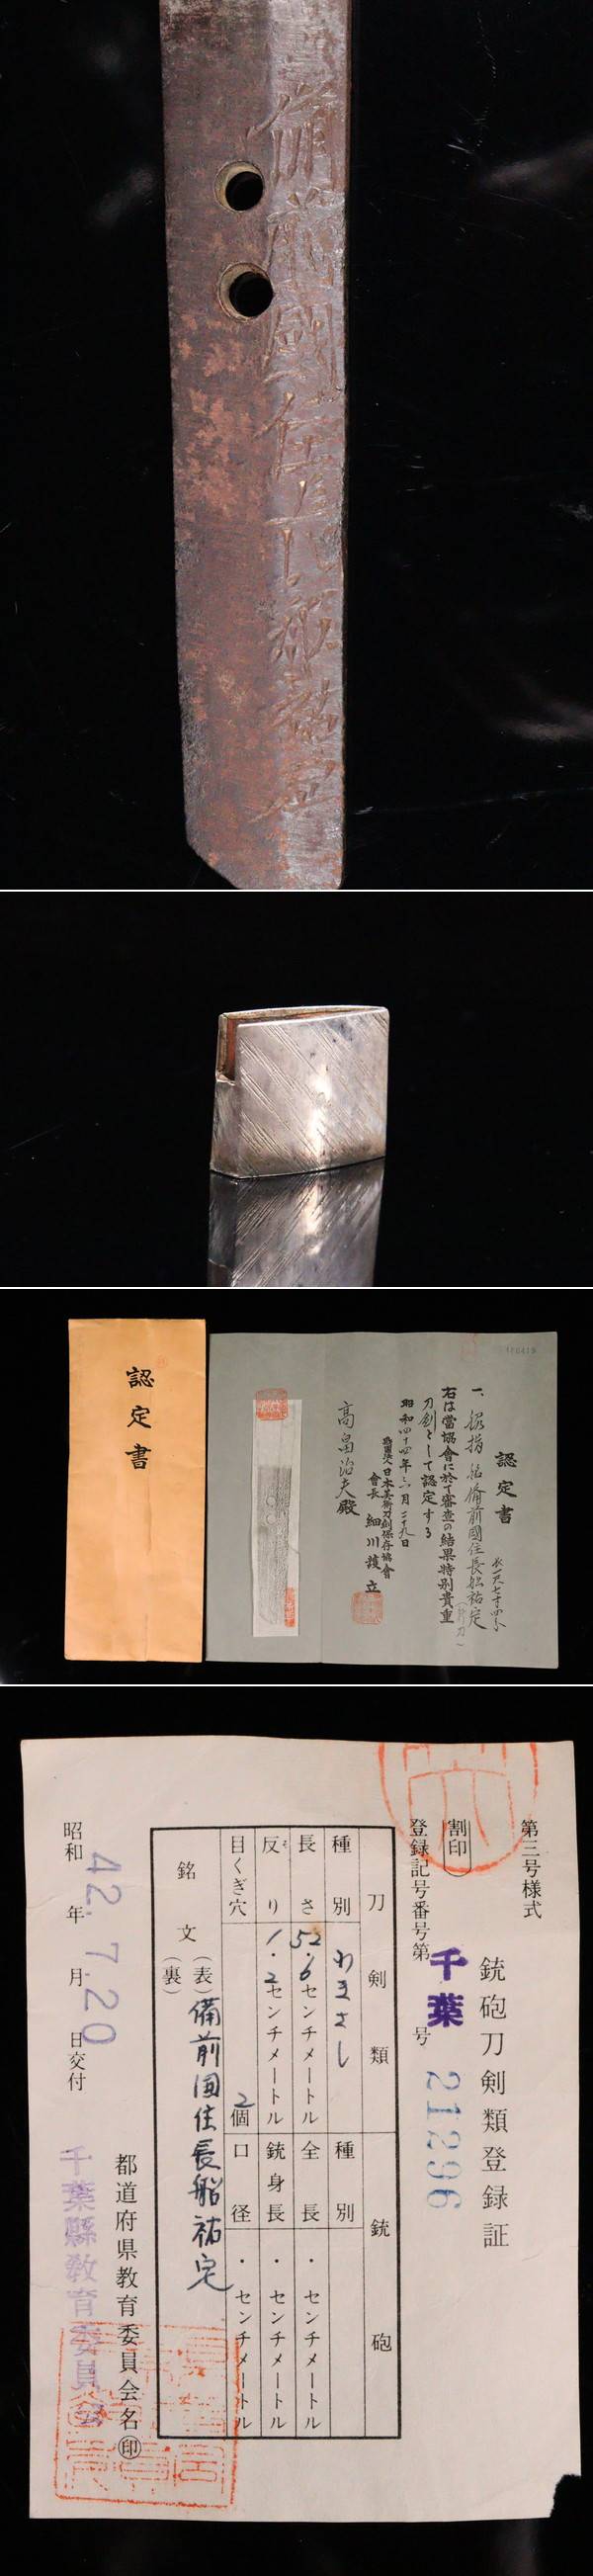 備前國住長船祐定
認定書
認定書
一、脇指 銘備前國住長船祐定
長一尺七寸四分
右は當協會に於て審査の結果特別貴重
刀剣として認定する
昭和四十四年六月二十九日
財團法人日本美術刀剣保存協會
會長 細川護立
高畠治夫殿
第三号様式
銃砲刀剣類登録証
割印
登録記号番号第 千葉 号 21296
刀剣類 銃砲
種別 わきざし 種別
長さ 52.6センチメートル 全長 ・センチメートル
反り 1.2センチメートル 銃身長 ・センチメートル
目くぎ穴 2個 口径 ・センチメートル
銘文 (表)備前国住長船祐定
(裏)
都道府県教育委員会名 印
千葉縣教育委員会
昭和 42年 7月 20日交付